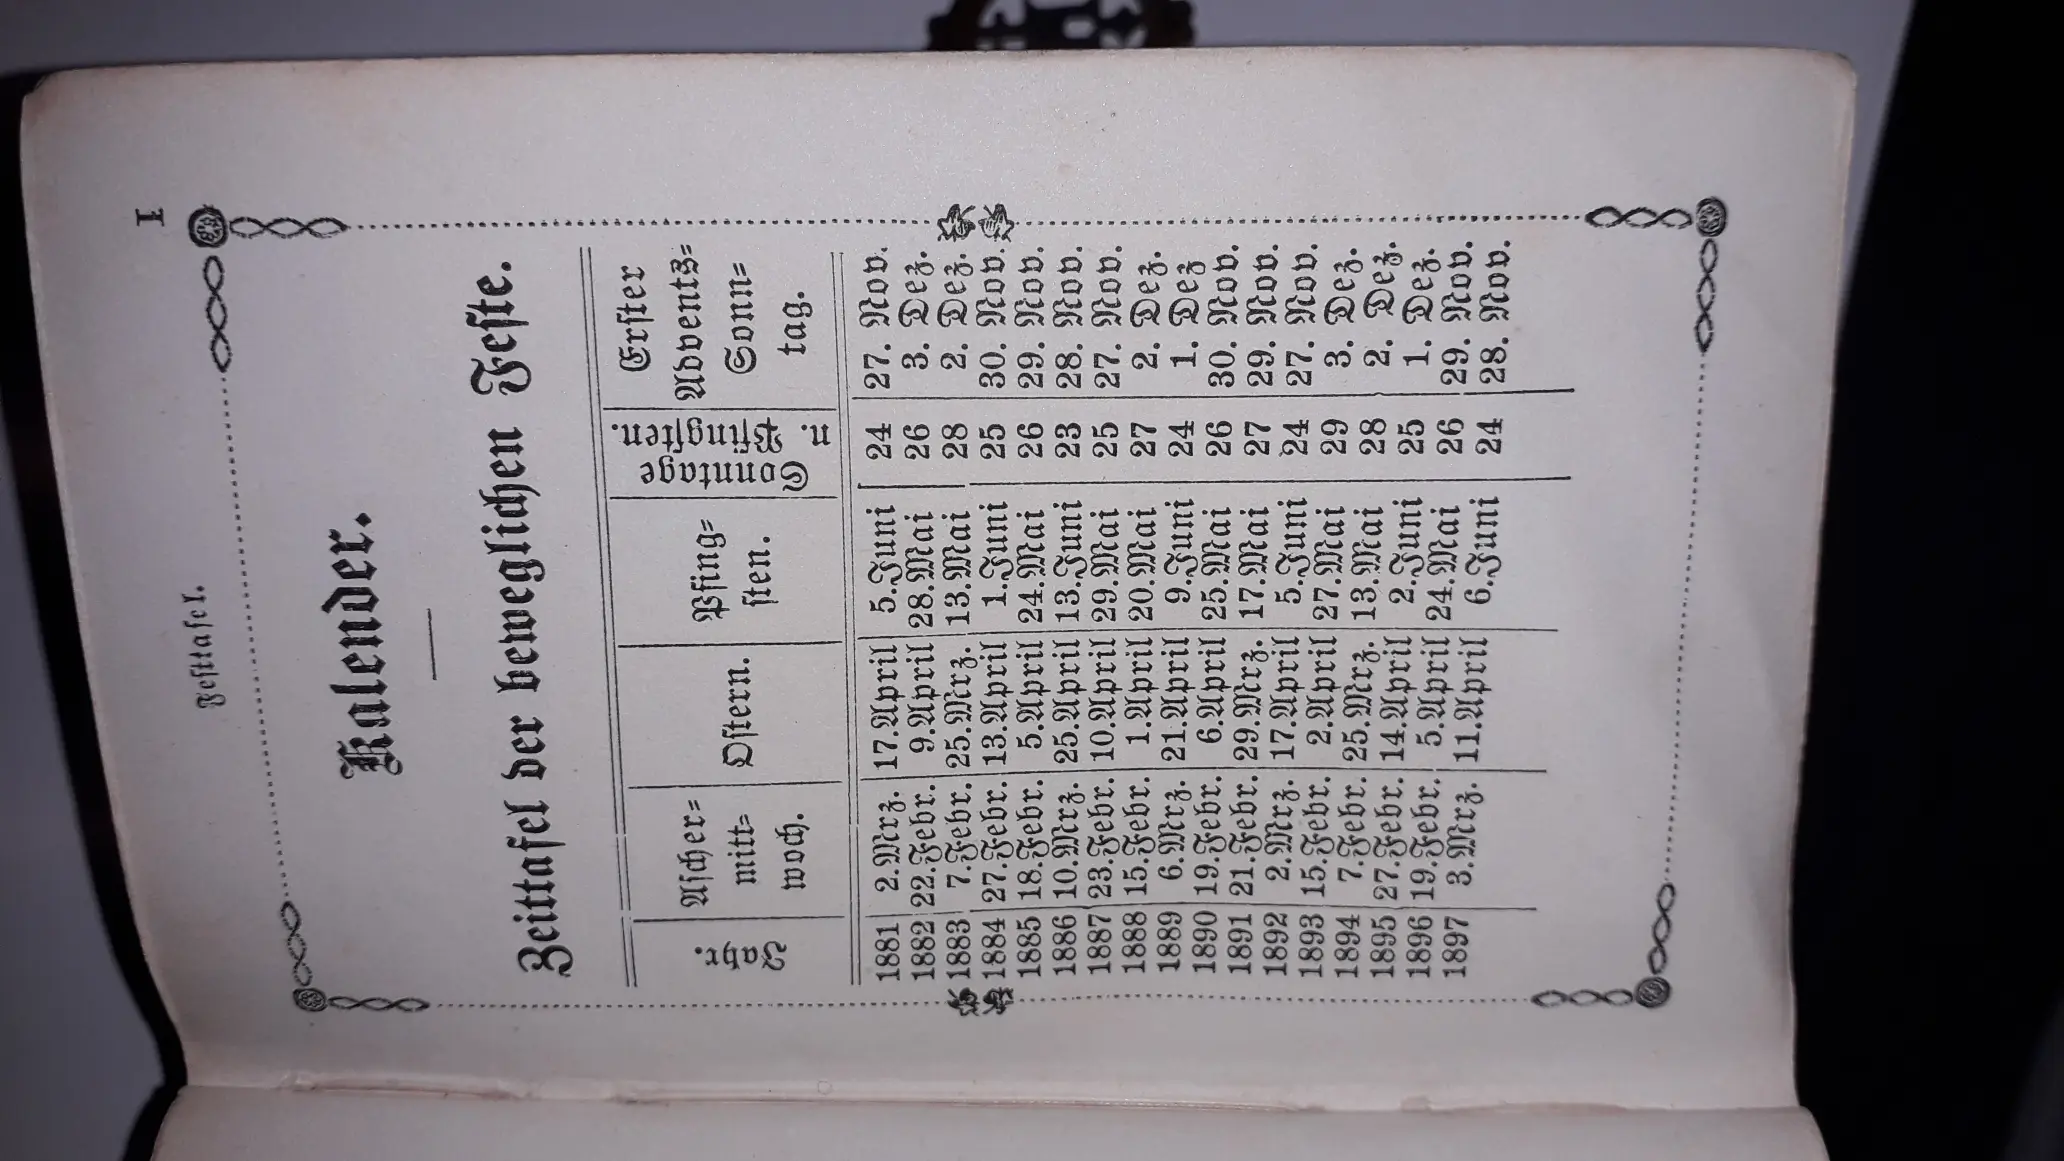 Festtafel. I
Kalender.
Zeittafel der beweglichen Feste.
Jahr.
Ascher=
mitt=
woch.
Ostern.
Pfing=
sten.
Sonntage
n. Pfingsten.
Erster
Advents=
Sonn=
tag.
1881 2.Mrz. 17.April 5.Juni 24 27. Nov.
1882 22.Febr. 9.April 28.Mai 26 3. Dez.
1883 7.Febr. 25.Mrz. 13.Mai 28 2. Dez.
1884 27.Febr. 13.April 1.Juni 25 30. Nov.
1885 18.Febr. 5.April 24.Mai 26 29. Nov.
1886 10.Mrz. 25.April 13.Juni 23 28. Nov.
1887 23.Febr. 10.April 29.Mai 25 27. Nov.
1888 15.Febr. 1.April 20.Mai 27 2. Dez.
1889 6.Mrz. 21.April 9.Juni 24 1. Dez
1890 19.Febr. 6.April 25.Mai 26 30. Nov.
1891 21.Febr. 29.Mrz. 17.Mai 27 29. Nov.
1892 2.Mrz. 17.April 5.Juni 24 27. Nov.
1893 15.Febr. 2.April 27.Mai 29 3. Dez.
1894 7.Febr. 25.Mrz. 13.Mai 28 2. Dez.
1895 27.Febr. 14.April 2.Juni 25 1. Dez.
1896 19.Febr. 5.April 24.Mai 26 29. Nov.
1897 3.Mrz. 11.April 6.Juni 24 28. Nov.